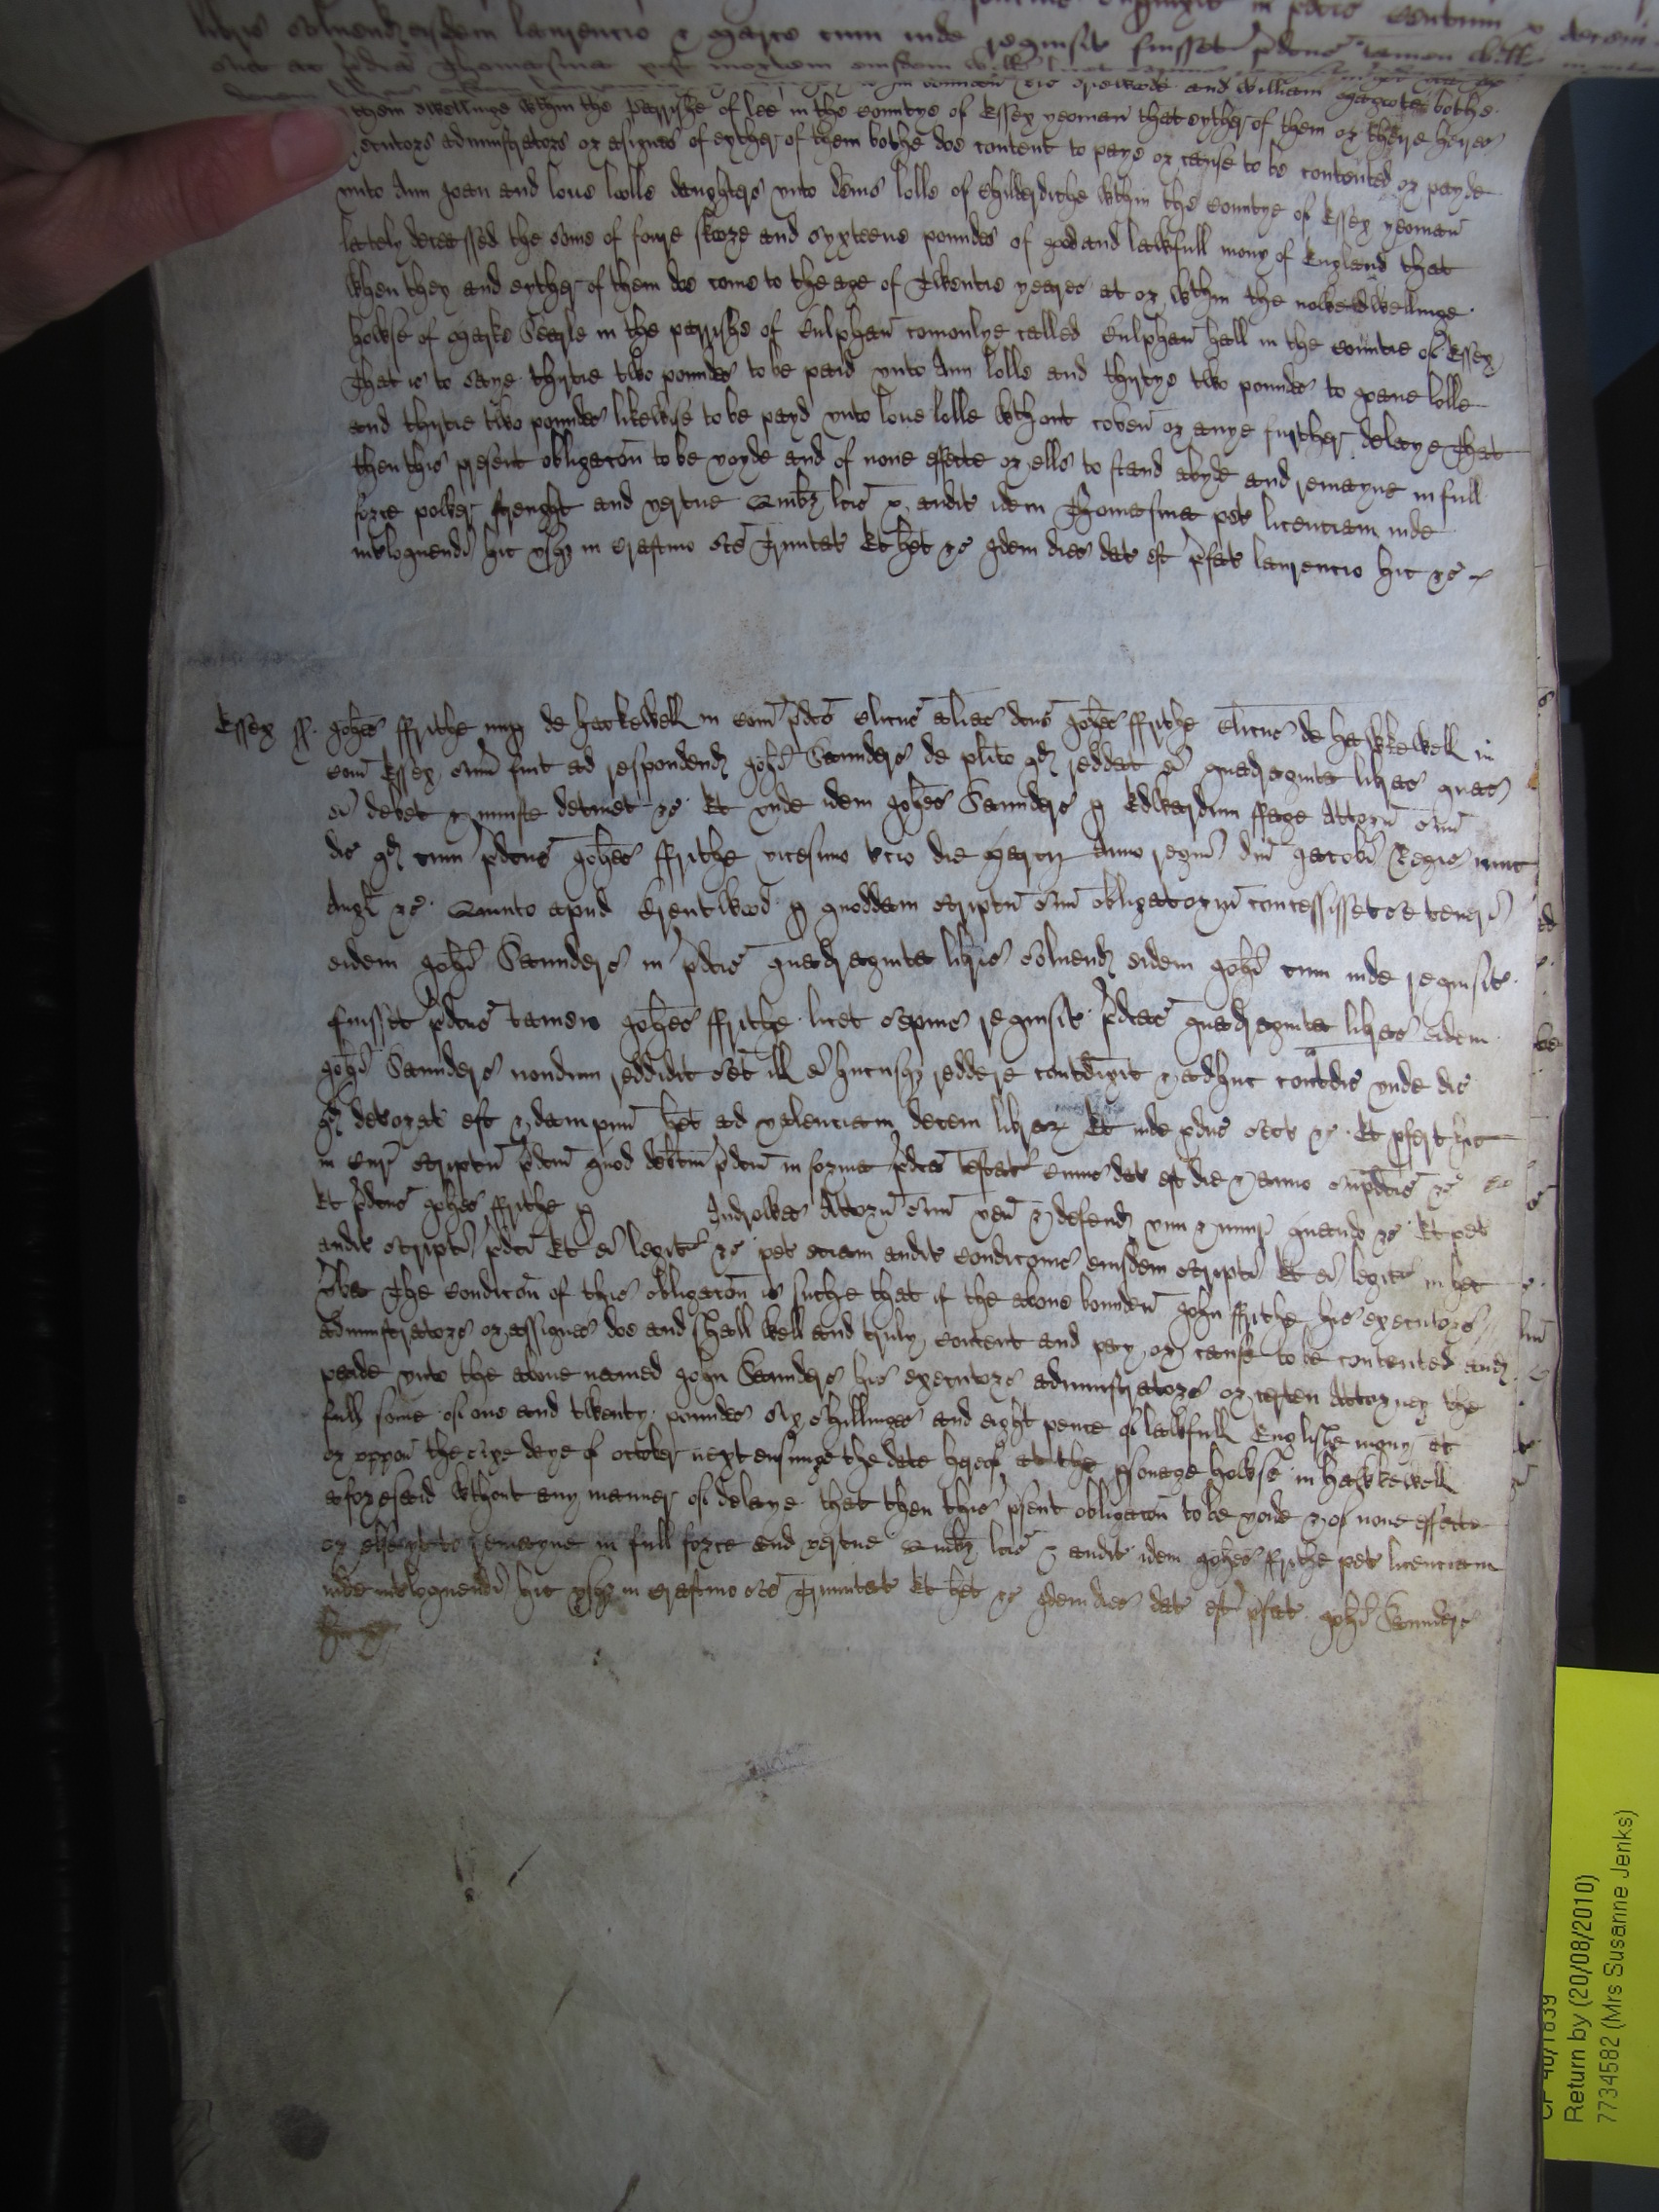 libris solvend eisdem Laurencio & Marco cum inde requisit fuisset p̄dcus tamen Will
them dwellinge wthin the Parrishe of Lee in the Countye of Essex yeoman that eyther of them or theire heires
executors administrators or asignes of eyther of them bothe doe content to paye or cause to be contented or payde
unto Ann Joan and Love Lolle daughters unto Denis Lolle of Childerdiche wthin the Countye of Essex yeoman
lately deceassed the some of foure skore and syxteene poundes of good and lawfull mony of England that
when they and eyther of them doe come to the age of Twentie yeares at or wthin the nowe dwellinge
howse of Marke Searle in the parrishe of Bulphan comonlye called Bulphan hall in the Countie of Essex
That is to saye thirtie two poundes to be paid unto Ann Lolle and thirtye two poundes to Joane Lolle
and thirtie two poundes likewise to be payd unto Love Lolle wthout coven or anye further delaye That
then this present obligacon to be voyde and of none effecte or ells to stand abyde and remayne in full
force power strenght and vertue Quibz lcis & audit idem Thomasina pet licenciam inde
intloquendi hic usqz in Crastino sce Trinitat Et het &c Idem dies dat est p̄fat Laurencio hic &c
Essex ss. Johes Ffrithe nup de Hackwell in Com p̄dco Clicus alias dcus Johes Ffrithe Clicus de Hawkewell in
Com Essex sum fuit ad respondend Johi Saunders de plito qd reddat ei quadraginta libras quas
ei debet & iniuste detinet &c Et unde idem Johes Saunders p Edwardum Ffage Attorn suu
dic qd cum p̄dcus Johes Ffrithe vicesimo tcio die Marcij Anno regni dni Jacobi Regis nunc
Angl &c Quinto apud Brentwood p quoddam scriptu suu obligatoriu concessisset se teneri
eidem Johi Saunders in p̄dcis quadraginta libris solvend eidem Johi cum inde requisit
fuisset p̄dcus tamen Johes Ffrithe licet sepius requisit p̄dcas quadraginta libras eidem
Johi Saunders nondum reddidit set ill ei hucusqz reddere contdixit & adhuc contdic unde dic
qd deteriorat est & dampnu het ad valenciam decem librar Et inde pduc sect &c Et pfert hic
in Cur scriptu p̄dcm quod debitm p̄dcm in forma p̄dca testat cuius dat est die & anno sup̄dcis &c
Et p̄dcus Johes Ffrithe p Androwes Attorn suu ven & defend vim & iniur quando &c Et pet
audit scripti p̄dci Et ei legit &c pet eciam audit Condicionis eiusdem scripti Et ei legit in hec
vba The Condicon of this obligacon is suche that if the above bounden John Ffrithe his executors
administrators or assignes doe and shall well and truly content and pay or cause to be contented and
paide unto the above named John Saunders his executors administrators or certen Attorney the
full some of one and twenty poundes six shillinges and eight pence of lawfull Englishe mony at
or uppon the sixe daye of October next ensuinge the date hereof at the psonage howse in Hawkewell
aforesaid wthout any manner of delaye that then this psent obligacon to be voide & of none effecte
or ells to remayne in full force and vertue Quibz lcis & audit idem Johes Ffrithe pet licenciam
inde intloquendi hic usqz in Crastino sce Trinitat Et het &c Idem dies dat est p̄fat Johi Saunders
hic &c
CP 40/1839
Return by (20/08/2010)
7734582 (Mrs Susanne Jenks)